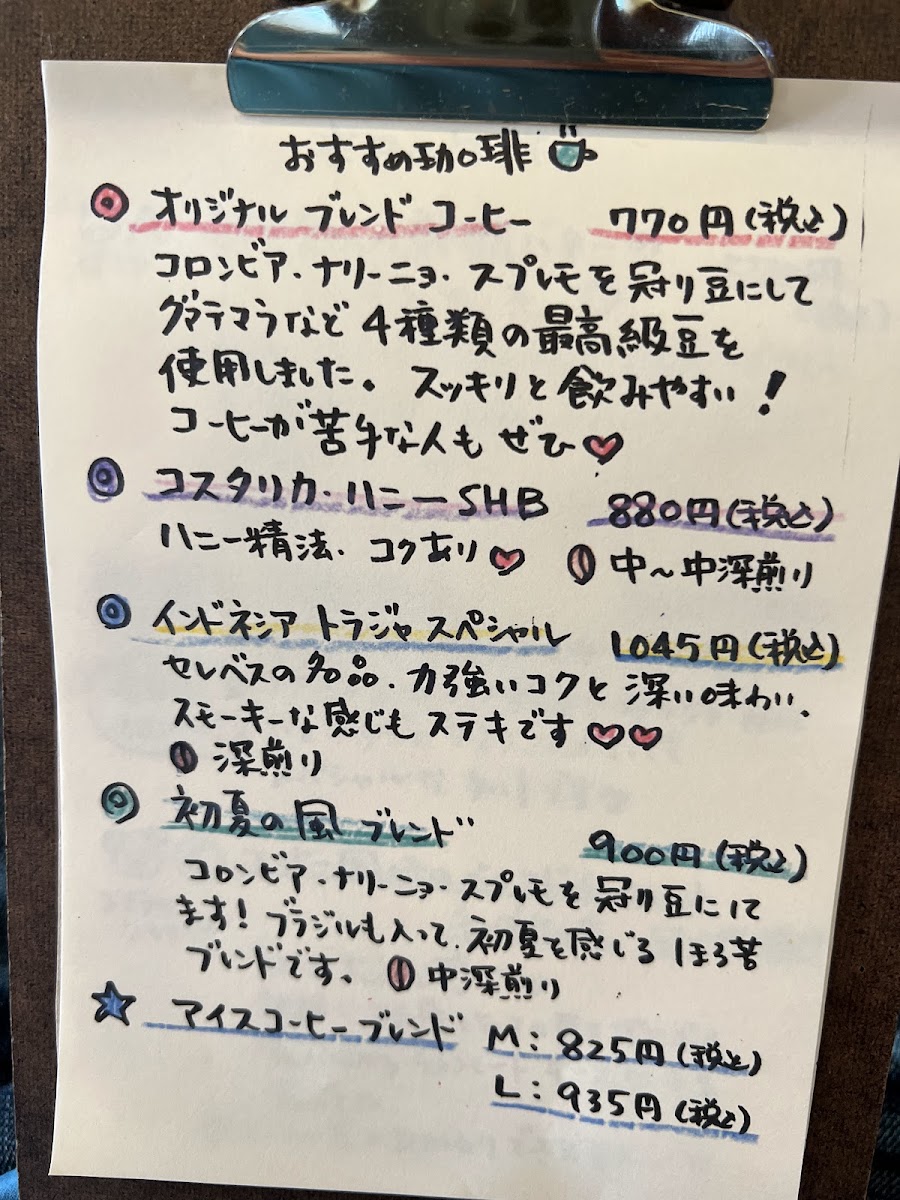 おすすめ珈琲
オリジナル ブレンド コーヒー 770円(税込)
コロンビア・ナリーニョ・スプレモを冠り豆にして
グァテマラなど4種類の最高級豆を
使用しました。スッキリと飲みやすい!
コーヒーが苦手な人も ぜひ♥
コスタリカ・ハニーSHB 880円(税込)
ハニー精法、コクあり♥ 中～中深煎り
インドネシア トラジャ スペシャル 1045円(税込)
セレベスの名品、力強いコクと深い味わい、
スモーキーな感じもステキです♥♥
深煎り
初夏の風 ブレンド 900円(税込)
コロンビア・ナリーニョ・スプレモを冠り豆にして
ます!ブラジルも入って、初夏を感じるほろ苦
ブレンドです。 中深煎り
アイスコーヒーブレンド M:825円(税込)
L:935円(税込)